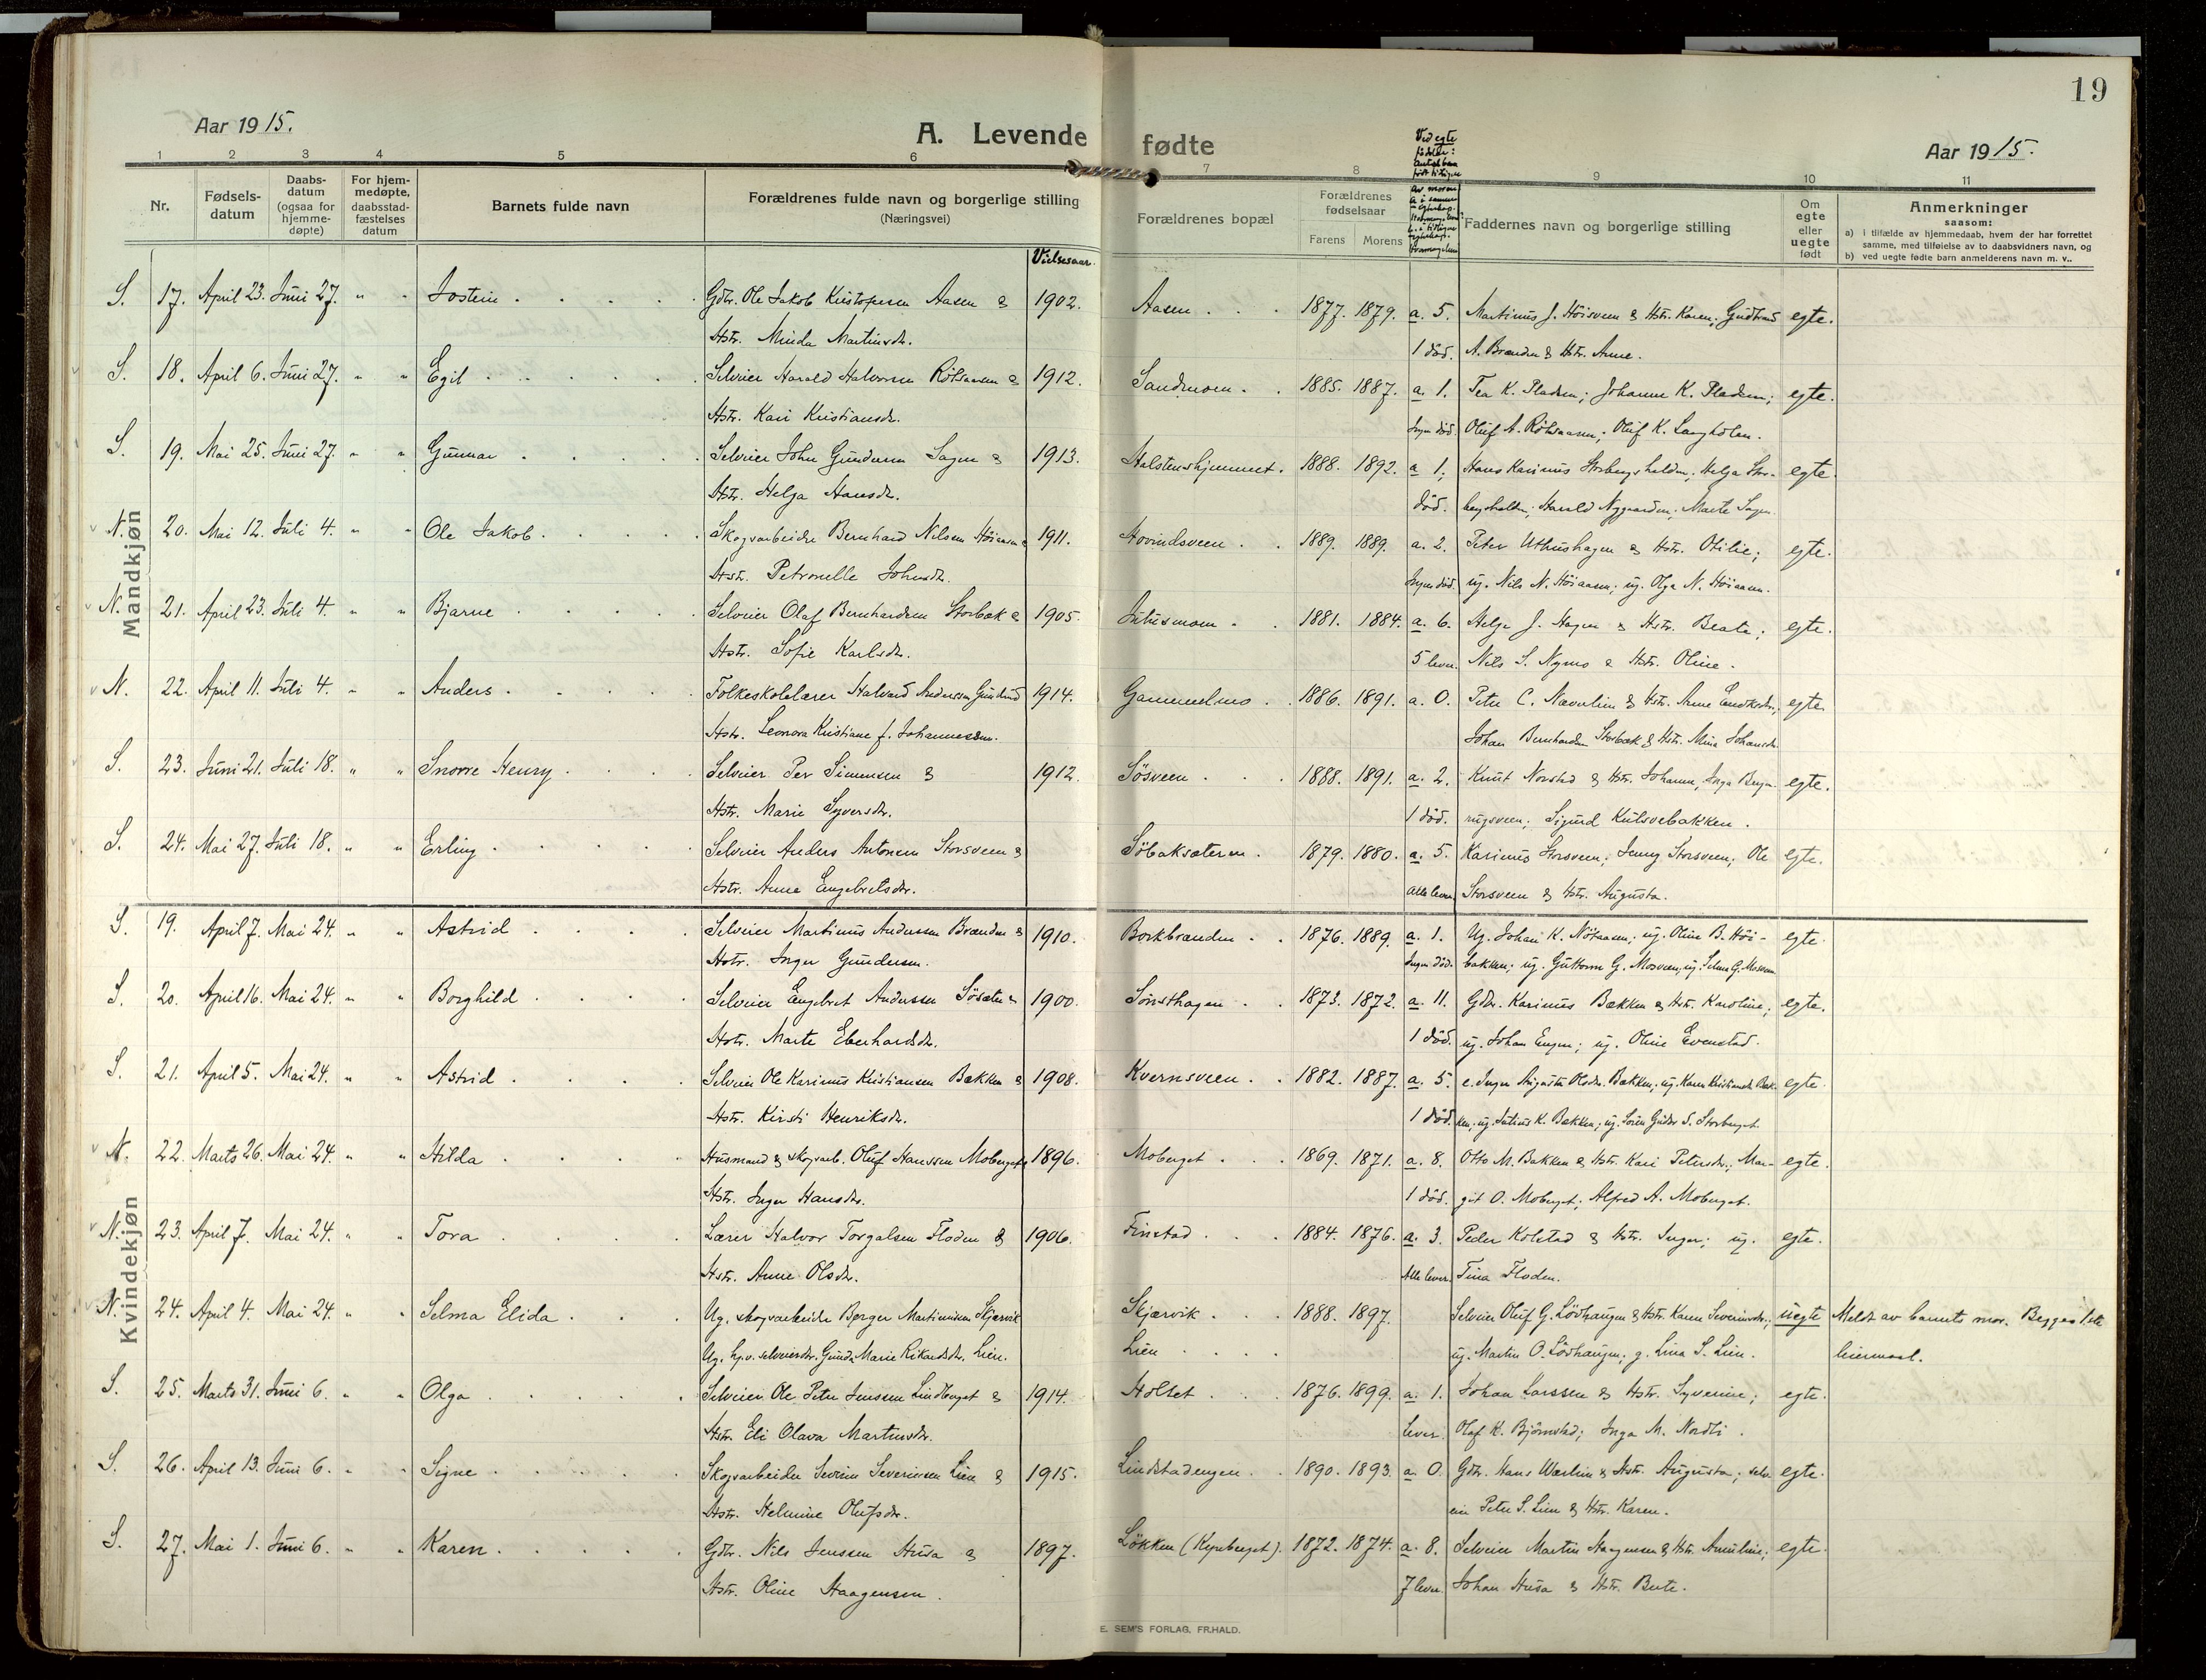 19
Aar 1915.
A. Levende fødte
Aar 1915.
1 2 3 4 5 6 7 8 9 10 11
Nr.
Fødsels-datum
Daabs-datum (ogsaa for hjemme-døpte)
For hjem-medøpte, daabsstad-fæstelses datum
Barnets fulde navn
Forældrenes fulde navn og borgerlige stilling
(Næringsvei)
Vielsesaar.
Forældrenes bopæl
Forældrenes fødselsaar
Farens Morens
Ved egte fødsler:
Faddernes navn og borgerlige stilling
Om egte eller uegte født
Anmerkninger
saasom:
a) i tilfælde av hjemmedaab, hvem der har forrettet
samme, med tilføielse av to daabsvidners navn, og
b) ved uegte fødte barn anmelderens navn m. v..
Mandkjøn
S. 17. April 23. Juni 27. " " Jostein Gdbr. Ole Jakob Kristofersen Aasen & 1902. Aasen 1877. 1879. a. 5. Martinus J. Höisveen & Hstr. Karen; Gudbrand egte.
Hstr. Minda Martinsdr. 1 död. A. Brænden & Hstr. Anne.
S. 18. April 6. Juni 27. " " Egil Selveier Harald Halvorsen Rötsaasen & 1912. Sandmoen 1885. 1887. a. 1. Tea K. Pladsen; Johanne K. Pladsen; egte.
Hstr. Kari Kristiansdr. Ingen död. Oluf A. Rötsaasen; Oluf K. Langholen.
S. 19. Mai 25. Juni 27. " " Gunnar Selveier John Gundersen Sagen & 1913. Halstenshjemmet 1888. 1892. a 1, Hans Karinius Storbergshalden; Helga Stor- egte.
Hstr. Helga Hansdr. död. bergshalden; Harald Nygaarden; Marte Sagen.
N. 20. Mai 12. Juli 4. " " Ole Jakob Skogarbeider Bernhard Nilsen Höiaasen & 1911. Hovindsveen 1889. 1889. a. 2. Peter Uthushagen & Hstr. Otilie; egte.
Hstr. Petronelle Johnsdr. Ingen död. ug. Nils N. Höiaasen; ug. Olga N. Höiaasen.
N. 21. April 23. Juli 4. " " Bjarne Selveier Olaf Bernhardsen Storbæk & 1905. Juliusmoen 1881. 1884. a. 6. Helge J. Hagen & Hstr. Beate; egte.
Hstr. Sofie Karlsdr. 5 lever. Nils S. Nymo & Hstr. Oline.
N. 22. April 11. Juli 4. " " Anders Folkeskolelærer Halvard Andersen Gunlund 1914. Gammelmo 1886. 1891. a. 0. Peter C. Næverlien & Hstr. Anne egte.
Hstr. Leonora Kristiane f. Johannessen. Johan Bernhardsen Storbæk & Hstr. Mina Johansdr.
S. 23. Juni 21. Juli 18. " " Snorre Henry Selveier Per Simensen & 1912. Sösveen 1888. 1891. a. 2. Knut Norstad & Hstr. Johanne, Inga egte.
Hstr. Marie Syversdr. 1 död. rugsveen; Sigurd Kulsvebakken.
S. 24. Mai 27. Juli 18. " " Erling Selveier Anders Antonsen Storsveen & Söbaksæteren 1879. 1880. a. 5. Karinius Storsveen; Jenny Storsveen; Ole egte.
Hstr. Anne Engebretsdr. Alle lever. Storsveen & Hstr. Augusta.
Kvindekjøn
S. 19. April 7. Mai 24. " " Astrid Selveier Martinus Andersen Brænden & 1910. Borkbrænden 1876. 1889. a. 1. Ug. Johan K. Nötaasen; ug. Oline B. Höi- egte.
Hstr. Inger Gundersen. Ingen död. bakken; ug. Guttorm G. Mosveen; ug. Selma G. Mosveen
S. 20. April 16. Mai 24. " " Borghild Selveier Engebret Andersen Sösæter & 1900. Sönsthagen 1873. 1872. a. 11. Gdbr. Karinius Bækken & Hstr. Karoline; egte.
Hstr. Marte Eberhardsdr. 1 död. ug. Johan Engen; ug. Oline Evenstad.
S. 21. April 5. Mai 24. " " Astrid Selveier Ole Karinius Kristiansen Bækken & 1908. Kvernsveen 1882. 1887. a. 5. e. Inger Augusta Olsdr. Bækken; ug. Karen Kristiansdr. Bæk- egte.
Hstr. Kirsti Henriksdr. 1 död. ken; ug. Julius K. Bækken; ug. Sören Gudbr. S. Storberget.
N. 22. Marts 26. Mai 24. " " Hilda Husmand & skogarb. Oluf Hanssen Moberget & 1896. Moberget 1869. 1871. a. 8. Otto M. Bakken & Hstr. Kari Petersdr.; Mar- egte.
Hstr. Inger Hansdr. 1 död. git O. Moberget; Alfred A. Moberget.
N. 23. April 7. Mai 24. " " Tora Lærer Halvor Torgalsen Floden & 1906. Finstad 1884. 1876. a. 3. Peder Kolstad & Hstr. Inger; ug. egte.
Hstr. Anne Olsdr. Alle lever. Tina Floden.
N. 24. April 4. Mai 24. " " Selma Elida Ug. skogarbeider Børger Martinusen Skjærvik Skjærvik 1888. 1897. Selveier Oluf G. Lövhaugen & Hstr. Karen Severinsdr.; uegte Meldt av barnets mor. Begges 1ste
Ug. hpv. selveierdr. Gunda Marie Rikardsdr. Lien. Lien ug. Martin O. Lövhaugen; g. Lina S. Lien. leiermaal.
S. 25. Marts 31. Juni 6. " " Olga Selveier Ole Peter Jenssen Lindberget & 1914. Holtet 1876. 1899. a. 1. Johan Larssen & Hstr. Syverine; egte.
Hstr. Eli Olava Martinsdr. lever. Olaf K. Björnstad; Inga M. Nordli.
S. 26. April 13. Juni 6. " " Signe Skogarbeider Severin Severinsen Lien & 1915. Lindstadengen 1890. 1893. a. 0. Gdbr. Hans Wærlien & Hstr. Augusta; selv- egte.
Hstr. Helmine Olufsdr. eier Peter S. Lien & Hstr. Karen.
S. 27. Mai 1. Juni 6. " " Karen Gdbr. Nils Jenssen Husa & 1897. Lökken (Kynberget). 1872. 1874. a. 8. Selveier Martin Haagensen & Hstr. Anuline; egte.
Hstr. Oline Haagensen. 7 lever. Johan Husa & Hstr. Berte.
E. SEM'S FORLAG, FR.HALD.